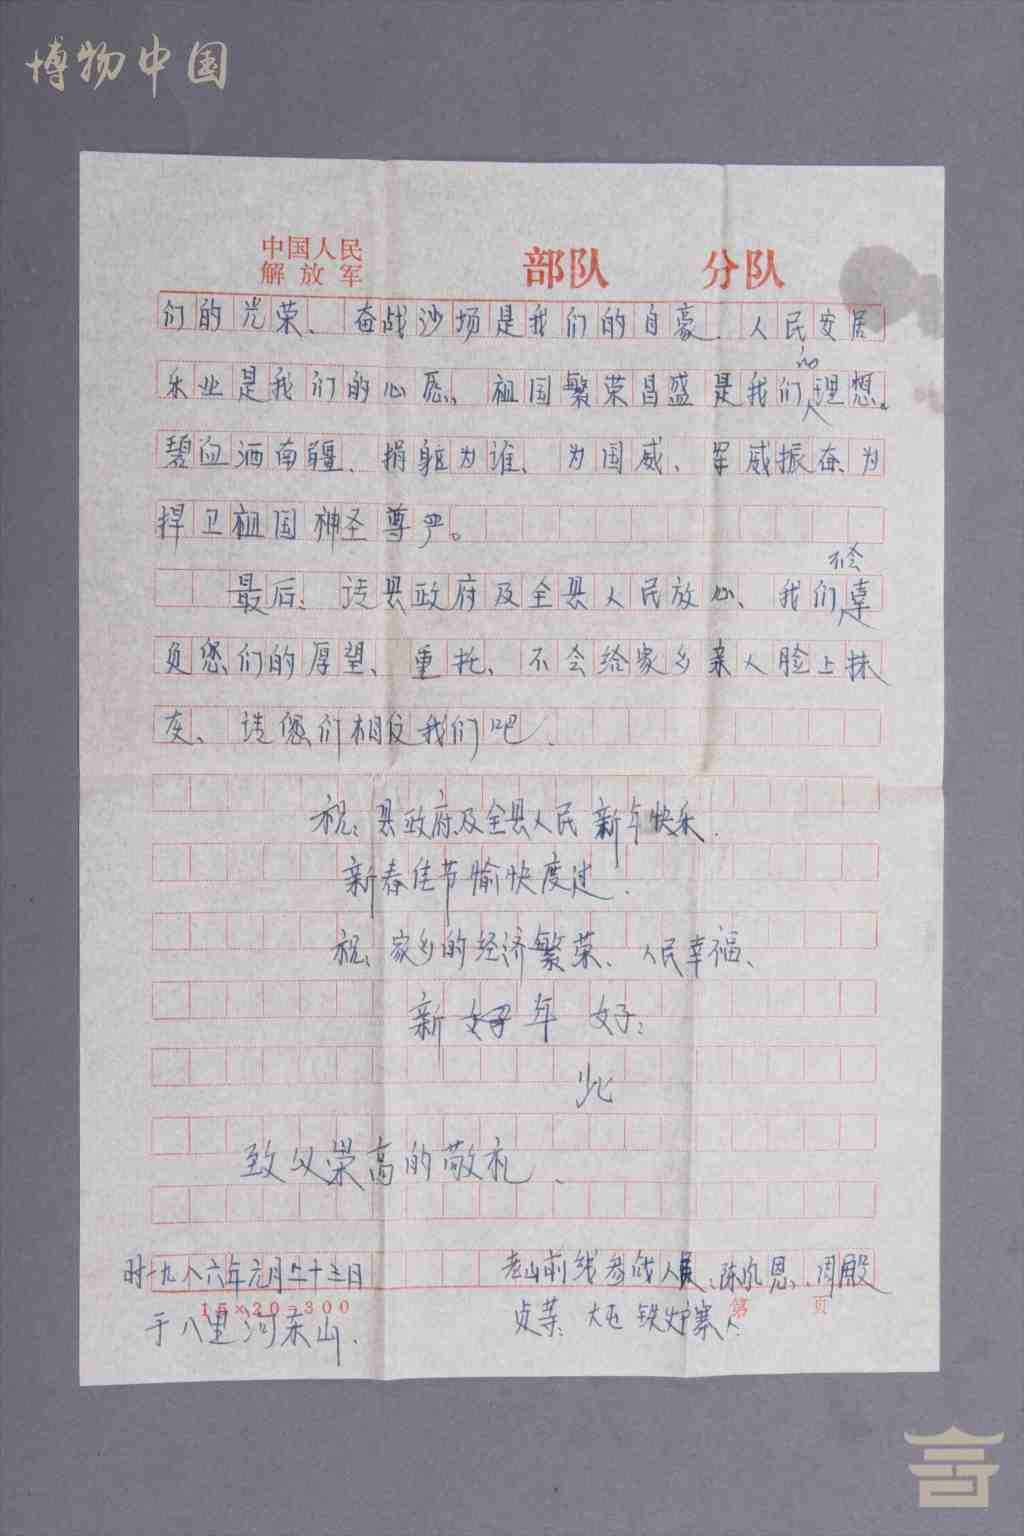 博物中国
中国人民
解放军
部队 分队
们的光荣、奋战沙场是我们的自豪.人民安居
乐业是我们的心愿、祖国繁荣昌盛是我们的理想。
碧血洒南疆、捐躯为谁、为国威、军威振奋、为
捍卫祖国神圣尊严。
最后:请县政府及全县人民放心、我们不会辜
负您们的厚望、重托、不会给家乡亲人脸上抹
灰、请您们相信我们吧.
祝:县政府及全县人民新年快乐.
新春佳节愉快度过.
祝:家乡的经济繁荣、人民幸福、
新年好:
此
致以崇高的敬礼、
时一九八六年元月二十三日
老山前线参战人员:陈 恩、周殿
15×20=300
第 页
于八里河东山.
贞等: 大屯铁炉寨人.